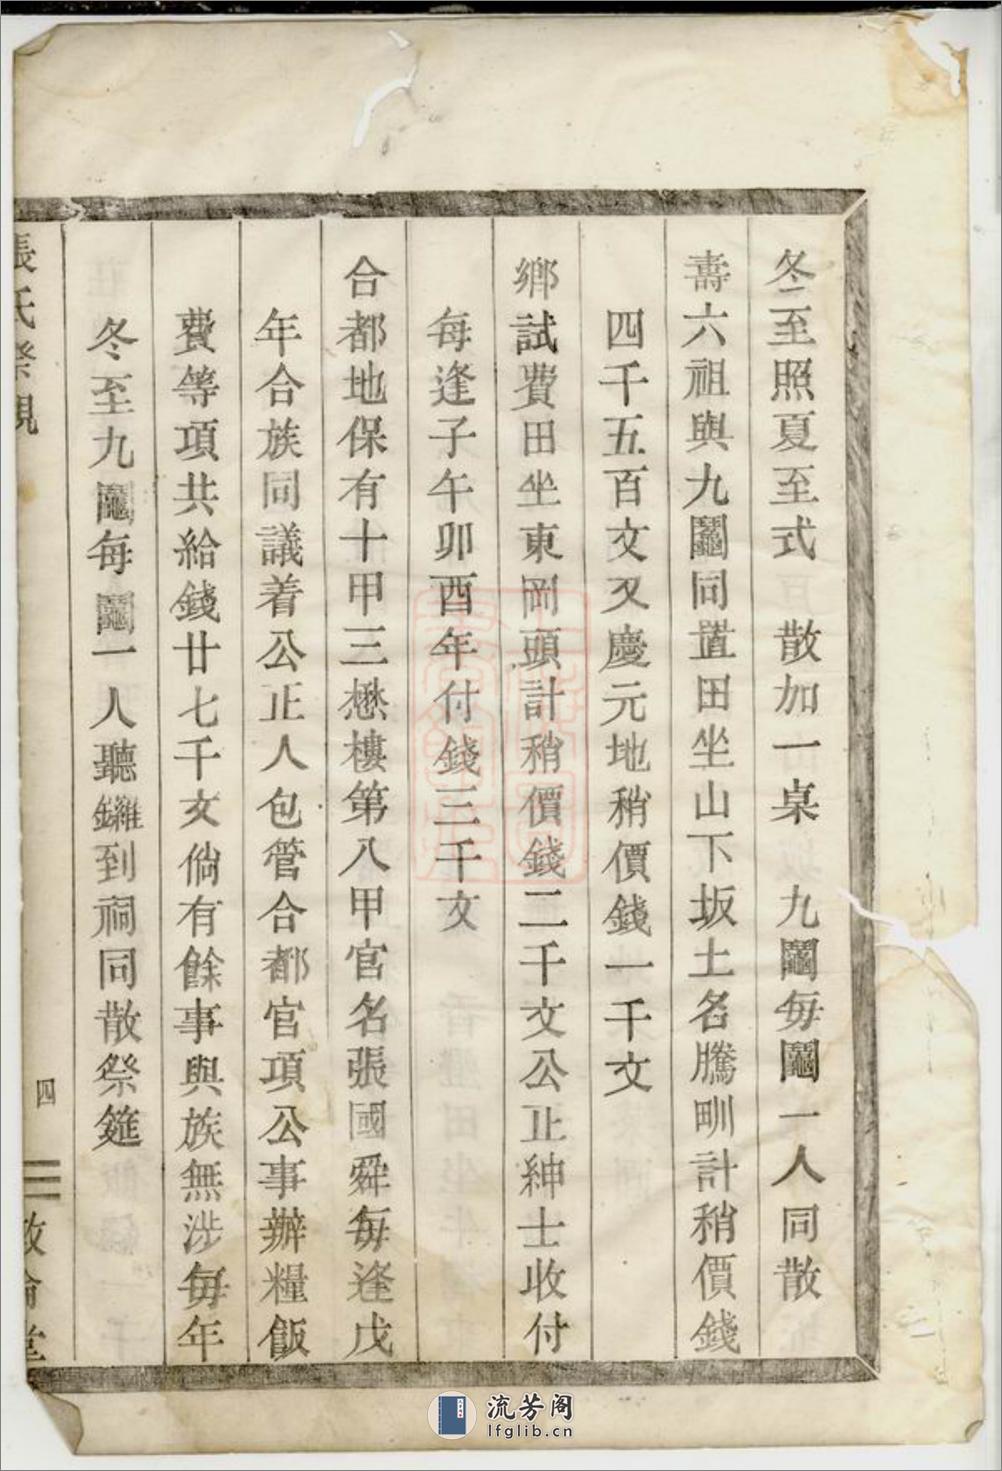 冬至照夏至式　散加一桌　九鬮每鬮一人同散
壽六祖與九鬮同置田坐山下坂土名騰甽計稍價錢
四千五百文又慶元地稍價錢一千文
鄉試費田坐東岡頭計稍價錢二千文公正紳士收付
每逢子午卯酉年付錢三千文
合都地保有十甲三懋樓第八甲官名張國舜每逢戊
年合族同議着公正人包管合都官項公事辦糧飯
費等項共給錢廿七千文倘有餘事與族無涉每年
冬至九鬮每鬮一人聽鑼到祠同散祭筵
張氏祭規
四
敦倫堂
流芳阁
lfglib.cn